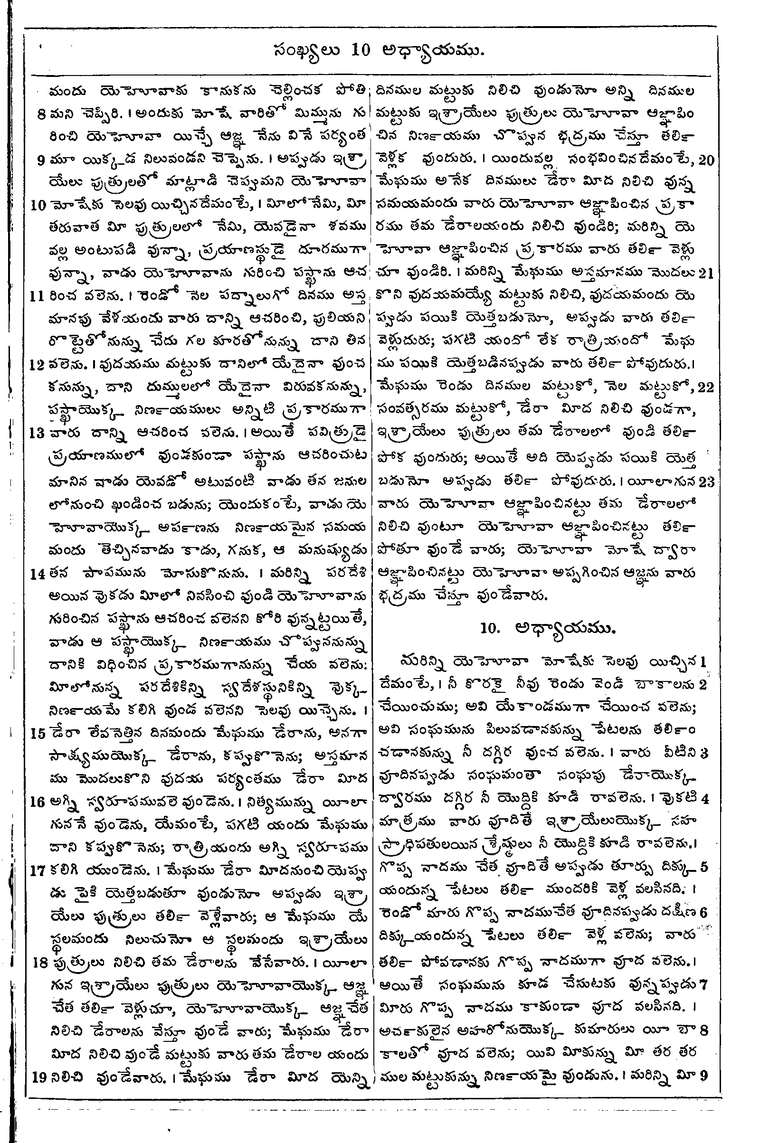 సంఖ్యలు 10 అధ్యాయము.
మందు యెహోవాకు కానుకను చెల్లించక పోతి
8 మని చెప్పిరి. । అందుకు మోషే వారితో మిమ్మును గు
రించి యెహోవా యిచ్చే ఆజ్ఞ నేను వినే పర్యంత
9 మూ యిక్కడ నిలువండని చెప్పెను. । అప్పుడు ఇశ్రా
యేలు పుత్రులతో మాట్లాడి చెప్పుమని యెహోవా
10 మోషేకు సెలవు యిచ్చినదేమంటే, । మీలో నేమి, మీ
తరువాత మీ పుత్రులలో నేమి, యెవడైనా శవము
వల్ల అంటుపడి వున్నా, ప్రయాణస్థుడై దూరముగా
వున్నా, వాడు యెహోవాను గురించి పస్ఖాను ఆచ
11 రించ వలెను. । రెండో నెల పద్నాలుగో దినము అస్త
మానపు వేళయందు వారు దాన్ని ఆచరించి, పులియని
రొట్టెతోనున్ను చేదు గల కూరతోనున్ను దాని తిన
12 వలెను. । వుదయము మట్టుకు దానిలో యేదైనా వుంచ
కనున్ను, దాని దుమ్ములలో యేదైనా విరువకనున్ను,
పస్ఖాయొక్క నిర్ణయములు అన్నిటి ప్రకారముగా
13 వారు దాన్ని ఆచరించ వలెను. । అయితే పవిత్రుడై
ప్రయాణములో వుండకుండా పస్ఖాను ఆచరించుట
మానిన వాడు యెవడో అటువంటి వాడు తన జనుల
లోనుంచి ఖండించ బడును; యెందుకంటే, వాడు యె
హోవాయొక్క అర్పణను నిర్ణయమైన సమయ
మందు తెచ్చినవాడు కాడు, గనుక, ఆ మనుష్యుడు
14 తన పాపమును మోసుకొనును. । మరిన్ని పరదేశి
అయిన వొకడు మీలో నివసించి వుండి యెహోవాను
గురించిన పస్ఖాను ఆచరించ వలెనని కోరి వున్నట్టయితే,
వాడు ఆ పస్ఖాయొక్క నిర్ణయము చొప్పుననున్ను
దానికి విధించిన ప్రకారముగానున్ను చేయ వలెను:
మీలోనున్న పరదేశికిన్ని స్వదేశస్థునికిన్ని వొక్క
నిర్ణయమే కలిగి వుండ వలెనని సెలవు యిచ్చెను. ।
15 డేరా లేవనెత్తిన దినమందు మేఘము డేరాను, అనగా
సాక్ష్యముయొక్క డేరాను, కప్పుకొనెను; అస్తమాన
ము మొదలుకొని వుదయ పర్యంతము డేరా మీద
16 అగ్ని స్వరూపమువలె వుండెను. । నిత్యమున్ను యీలా
గుననే వుండెను, యేమంటే, పగటి యందు మేఘము
దాని కప్పుకొనెను; రాత్రియందు అగ్ని స్వరూపము
17 కలిగి యుండెను. । మేఘము డేరా మీదనుంచి యెప్పు
డు పైకి యెత్తబడుతూ వుండునో అప్పుడు ఇశ్రా
యేలు పుత్రులు తర్లి వెళ్లేవారు; ఆ మేఘము యే
స్థలమందు నిలుచునో ఆ స్థలమందు ఇశ్రాయేలు
18 పుత్రులు నిలిచి తమ డేరాలను వేసేవారు. । యీలా
గున ఇశ్రాయేలు పుత్రులు యెహోవాయొక్క ఆజ్ఞ
చేత తర్లి వెళ్లుచూ, యెహోవాయొక్క ఆజ్ఞ చేత
నిలిచి డేరాలను వేస్తూ వుండే వారు; మేఘము డేరా
మీద నిలిచి వుండే మట్టుకు వారు తమ డేరాల యందు
19 నిలిచి వుండేవారు. । మేఘము డేరా మీద యెన్ని
దినముల మట్టుకు నిలిచి వుండునో అన్ని దినముల
మట్టుకు ఇశ్రాయేలు పుత్రులు యెహోవా ఆజ్ఞాపిం
చిన నిర్ణయము చొప్పున భద్రము చేస్తూ తర్లి
వెళ్లక వుందురు. । యిందువల్ల సంభవించినదేమంటే, 20
మేఘము అనేక దినములు డేరా మీద నిలిచి వున్న
సమయమందు వారు యెహోవా ఆజ్ఞాపించిన ప్రకా
రము తమ డేరాలయందు నిలిచి వుండిరి; మరిన్ని యె
హోవా ఆజ్ఞాపించిన ప్రకారము వారు తర్లి వెళ్లు
చూ వుండిరి. । మరిన్ని మేఘము అస్తమానము మొదలు 21
కొని వుదయమయ్యే మట్టుకు నిలిచి, వుదయమందు యె
ప్పుడు పయికి యెత్తబడునో, అప్పుడు వారు తర్లి
వెళ్లుదురు; పగటి యందో లేక రాత్రియందో మేఘ
ము పయికి యెత్తబడినప్పుడు వారు తర్లి పోవుదురు. ।
మేఘము రెండు దినముల మట్టుకో, నెల మట్టుకో, 22
సంవత్సరము మట్టుకో, డేరా మీద నిలిచి వుండగా,
ఇశ్రాయేలు పుత్రులు తమ డేరాలలో వుండి తర్లి
పోక వుందురు; అయితే అది యెప్పుడు పయికి యెత్త
బడునో అప్పుడు తర్లి పోవుదురు. । యీలాగున 23
వారు యెహోవా ఆజ్ఞాపించినట్టు తమ డేరాలలో
నిలిచి వుంటూ యెహోవా ఆజ్ఞాపించినట్టు తర్లి
పోతూ వుండే వారు; యెహోవా మోషే ద్వారా
ఆజ్ఞాపించినట్టు యెహోవా అప్పగించిన ఆజ్ఞను వారు
భద్రము చేస్తూ వుండేవారు.
10. అధ్యాయము.
మరిన్ని యెహోవా మోషేకు సెలవు యిచ్చిన 1
దేమంటే, । నీ కొరకై నీవు రెండు వెండి బాకాలను 2
చేయించుము; అవి యేకాండముగా చేయించ వలెను;
అవి సంఘమును పిలువడానకున్ను పేటలను తర్లిం
చడానకున్ను నీ దగ్గిర వుంచ వలెను. । వారు వీటిని 3
వూదినప్పుడు సంఘమంతా సంఘపు డేరాయొక్క
ద్వారము దగ్గిర నీ యొద్దికి కూడి రావలెను. । వొకటి 4
మాత్రము వారు వూదితే ఇశ్రాయేలుయొక్క సహ
స్రాధిపతులయిన శ్రేష్ఠులు నీ యొద్దికి కూడి రావలెను. ।
గొప్ప నాదము చేత వూదితే అప్పుడు తూర్పు దిక్కు 5
యందున్న పేటలు తర్లి ముందరికి వెళ్ల వలసినది. ।
రెండో మారు గొప్ప నాదముచేత వూదినప్పుడు దక్షిణ 6
దిక్కుయందున్న పేటలు తర్లి వెళ్ల వలెను; వారు
తర్లి పోవడానకు గొప్ప నాదముగా వూద వలెను. ।
అయితే సంఘమును కూడ చేసుటకు వున్నప్పుడు 7
మీరు గొప్ప నాదము కాకుండా వూద వలసినది. ।
అర్చకులైన అహరోనుయొక్క కుమారులు యీ బా 8
కాలతో వూద వలెను; యివి మీకున్ను మీ తర తర
ముల మట్టుకున్ను నిర్ణయమై వుండును. । మరిన్ని మీ 9